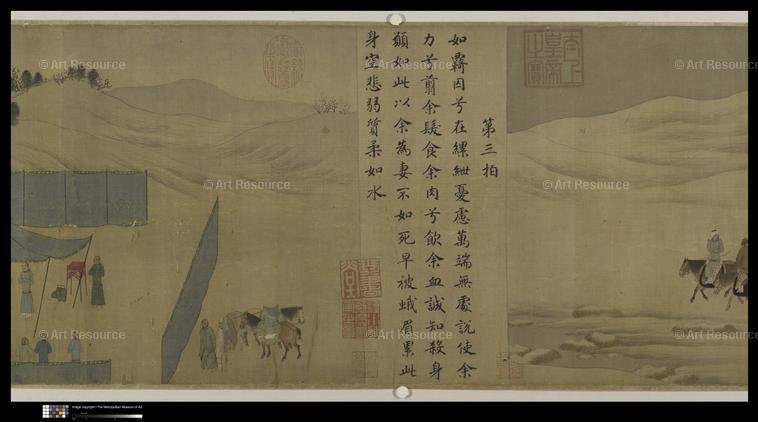 第三拍
如羇囚兮在縲紲憂慮萬端無處說使余
力兮翦余髮食余肉兮飲余血誠知殺身
願如此以余為妻不如死早被蛾眉累此
身空悲弱質柔如水
太上皇帝之寶
© Art Resource
© Art Resource
© Art Resource
© Art Resource
© Art Resource
© Art Resource
© Art Resource
© Art Resource
© Art Resource
Image copyright ©The Metropolitan Museum of Art